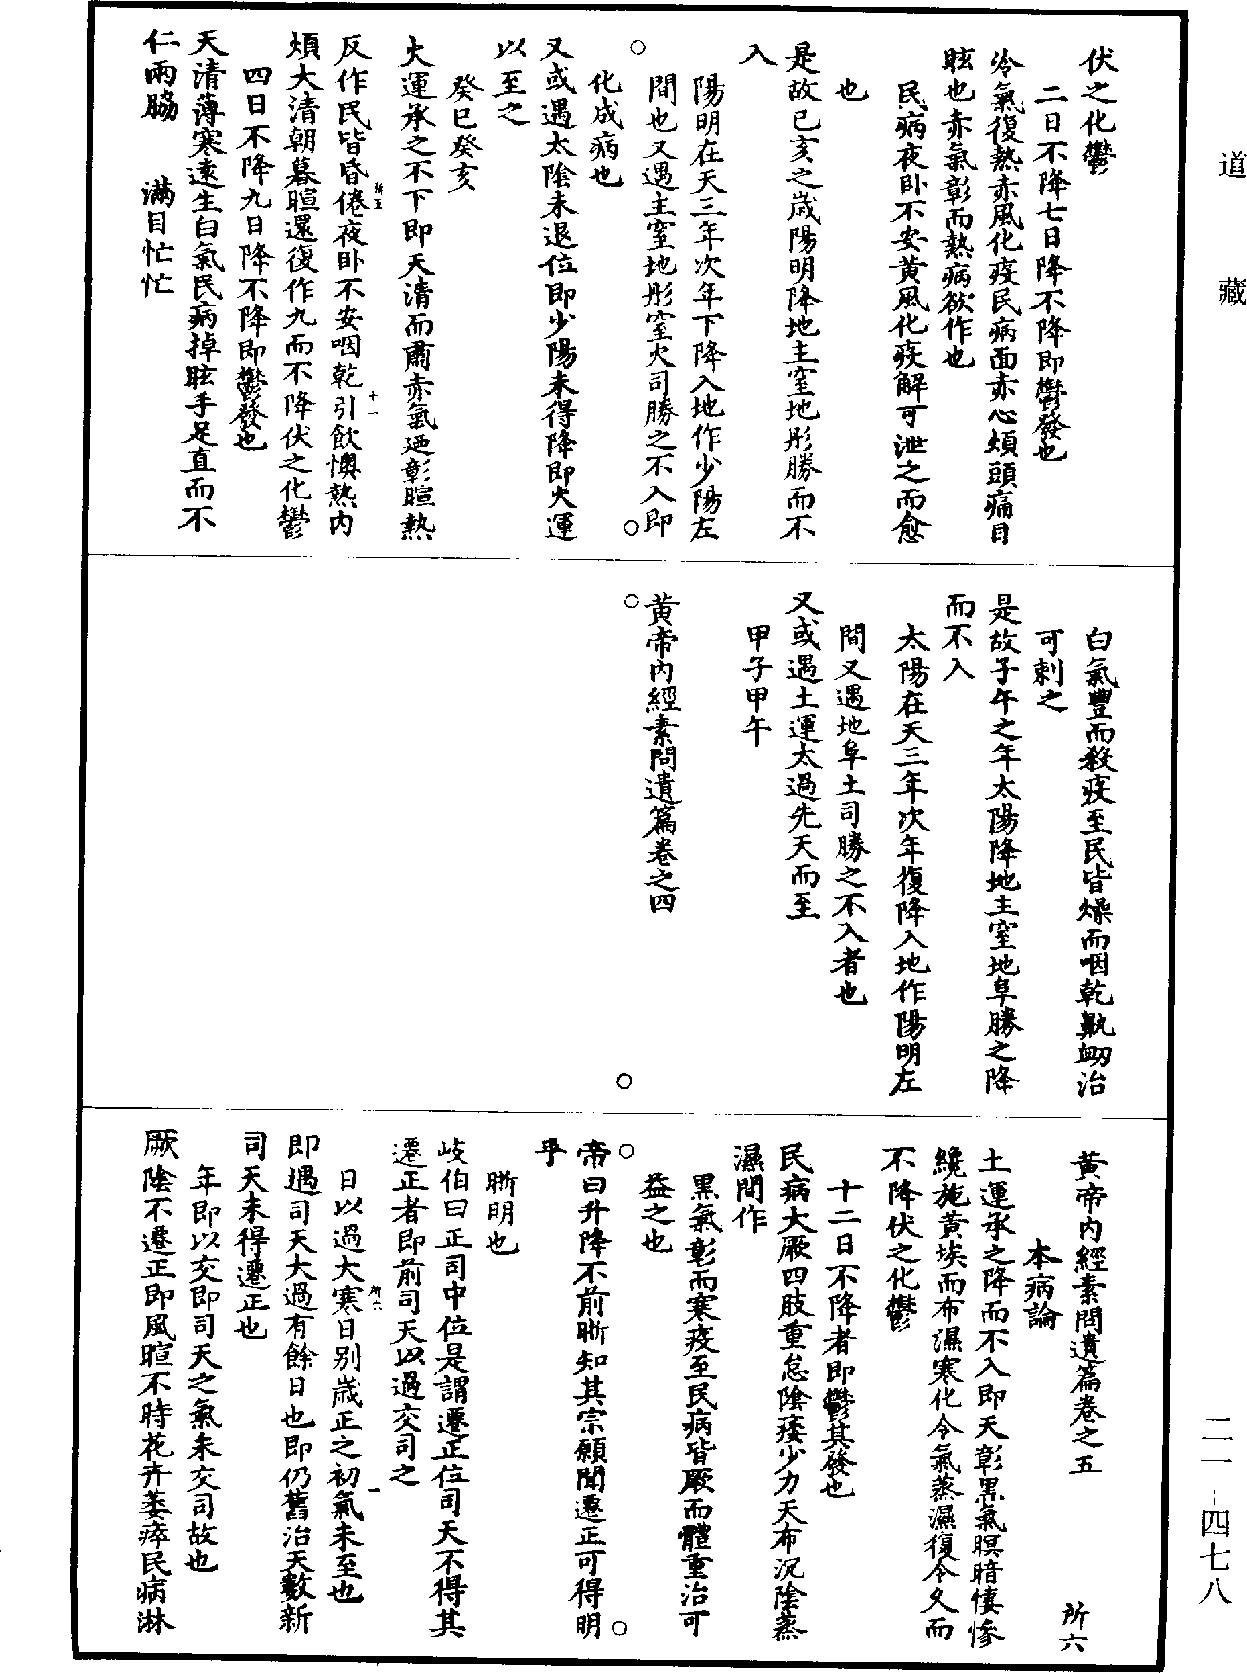 道藏
伏之化鬱
二日不降七日降不降即鬱發也
冷氣復熱赤風化疫民病面赤心煩頭痛目
眩也赤氣彰而熱病欲作也
民病夜卧不安黄風化疾解可泄之而愈
也
是故巳亥之歲陽明降地主窒地彤勝而不
入
陽明在天三年次年下降入地作少陽左
間也又遇主窒地彤窒火司勝之不入即
化成病也
又或遇太陰未退位即少陽未得降即火運
以至之
癸巳癸亥
火運承之不下即天清而肅赤氣廼彰暄熱
反作民皆昏倦夜卧不安咽乾引飲懊熱内
煩大清朝暮暄還復作九而不降伏之化鬱
四日不降九日降不降即鬱發也
天清薄寒遠生白氣民病掉眩手足直而不
仁兩脇　滿目忙忙
白氣豐而殺疫至民皆燥而咽乾鼽衂治
可刺之
是故子午之年太陽降地主窒地阜勝之降
而不入
太陽在天三年次年復降入地作陽明左
間又遇地阜土司勝之不入者也
又或遇土運太過先天而至
甲子甲午
黄帝内經素問遺篇卷之四
黄帝内經素問遺篇卷之五　所六
本病論
土運承之降而不入即天彰黑氣暝暗悽慘
纔施黄埃而布濕寒化令氣蒸濕復令久而
不降伏之化鬱
十二日不降者即鬱其發也
民病大厥四肢重怠陰痿少力天布沉陰蒸
濕間作
黑氣彰而寒疫至民病皆厥而體重治可
益之也
帝曰升降不前晰知其宗願聞遷正可得明
乎
晰明也
岐伯曰正司中位是謂遷正位司天不得其
遷正者即前司天以過交司之
日以過大寒日别歲正之初氣未至也
即遇司天太過有餘日也即仍舊治天數新
司天未得遷正也
年即以交即司天之氣未交司故也
厥陰不遷正即風暄不時花卉萎瘁民病淋
二一-四七八